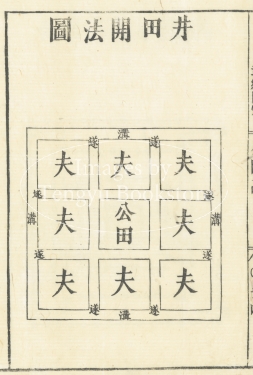 井田開法圖
溝
遂 遂
夫 夫 夫
遂 遂
溝 夫 公田 夫 溝
遂 遂
夫 夫 夫
遂 遂
溝